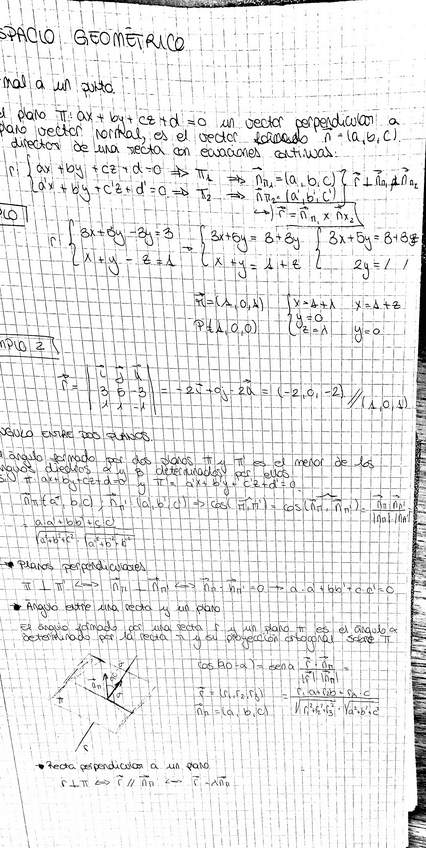 SPACIO GEOMÉTRICO
mal a un punto.
el plano π: ax + by + cz + d = 0 un vector perpendicular a
plano vector normal, es el vector formado n⃗ = (a, b, c)
director de una recta con ecuaciones continuas:
r: { ax + by + cz + d = 0 ⇒ π₁ ⇒ n⃗π₁ = (a, b, c) } r⃗ ⊥ n⃗π₁ ⊥ n⃗π₂
a'x + b'y + c'z + d' = 0 ⇒ π₂ ⇒ n⃗π₂ = (a', b', c')
↪ r⃗ = n⃗π₁ x n⃗π₂
PLO
r { 3x + 5y - 3y = 3 ⇒ { 3x + 5y = 3 + 3y { 3x + 5y = 3 + 3z
x + y - z = 1 { x + y = 1 + z { 2y = / /
r⃗ = (1, 0, 1) { x = 1 + λ x = 1 + z
P (1, 0, 0) y = 0
z = λ y = 0
MPLO 2
r⃗ = | i j k
3 5 -3
1 1 -1 | = -2i⃗ + 0j - 2k⃗ = (-2, 0, -2) // (1, 0, 1)
NGULO ENTRE DOS PLANOS.
l ángulo formado por dos planos π y π' es el menor de los
ngulos diedros α y β determinados por ellos
π: ax + by + cz + d = 0 y π' = a'x + b'y + c'z + d' = 0
n⃗π (a, b, c), n⃗π' (a', b', c') ⇒ cos (π, π') = cos (n⃗π, n⃗π') = n⃗π · n⃗π' / |n⃗π| · |n⃗π'|
= a·a' + bb' + c·c' / √a² + b² + c² · √a'² + b'² + c'²
• Planos perpendiculares
π ⊥ π' ⟺ n⃗π ⊥ n⃗π' ⟺ n⃗π · n⃗π' = 0 → a · a' + bb' + c · c' = 0
• Ángulo entre una recta y un plano
El ángulo formado por una recta r y un plano π es el ángulo α
determinado por la recta π y su proyección ortogonal sobre π.
cos (90 - α) = sen α = r⃗ · n⃗π / |r⃗| · |n⃗π| =
r⃗ = (r₁, r₂, r₃) = r₁ · a + r₂ b + r₃ · c / √r₁² + r₂² + r₃² · √a² + b² + c²
n⃗π = (a, b, c)
π
n⃗π
α
r
• Recta perpendicular a un plano
r ⊥ π ⟺ r⃗ // n⃗π ⟸ r⃗ = λn⃗π